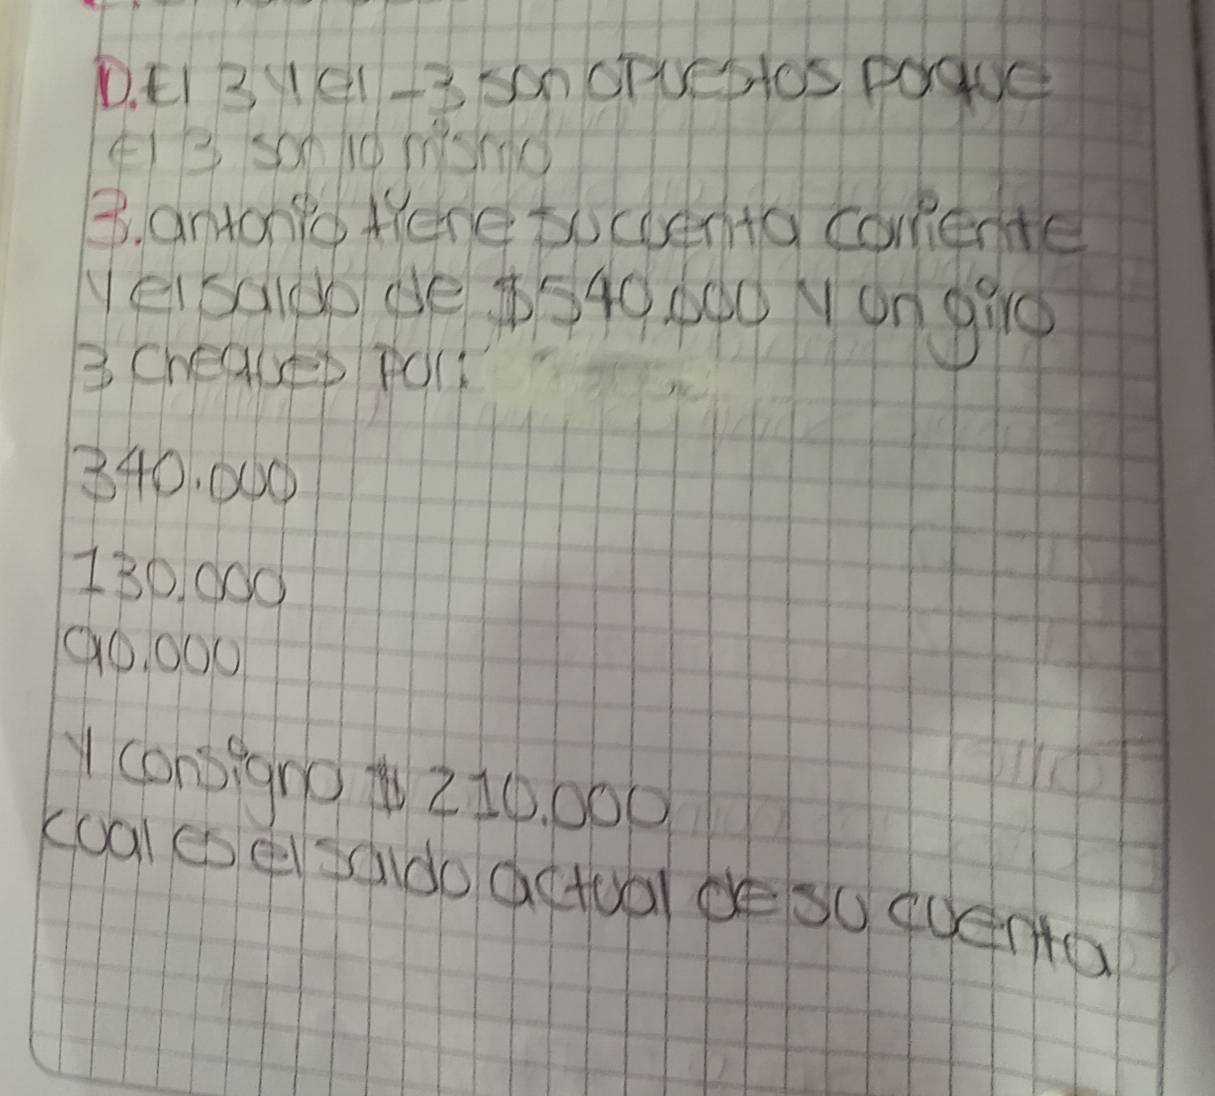 D. El 3 y el -3 son opuestos poque
El 3 son lo mismo
3. antonio tiene su cuenta corriente
y el saldo de $540.000 y un giro
3 cheques por:
340.000
130.000
90.000
y consigno $ 210.000
cual es el saldo actual de su cuenta